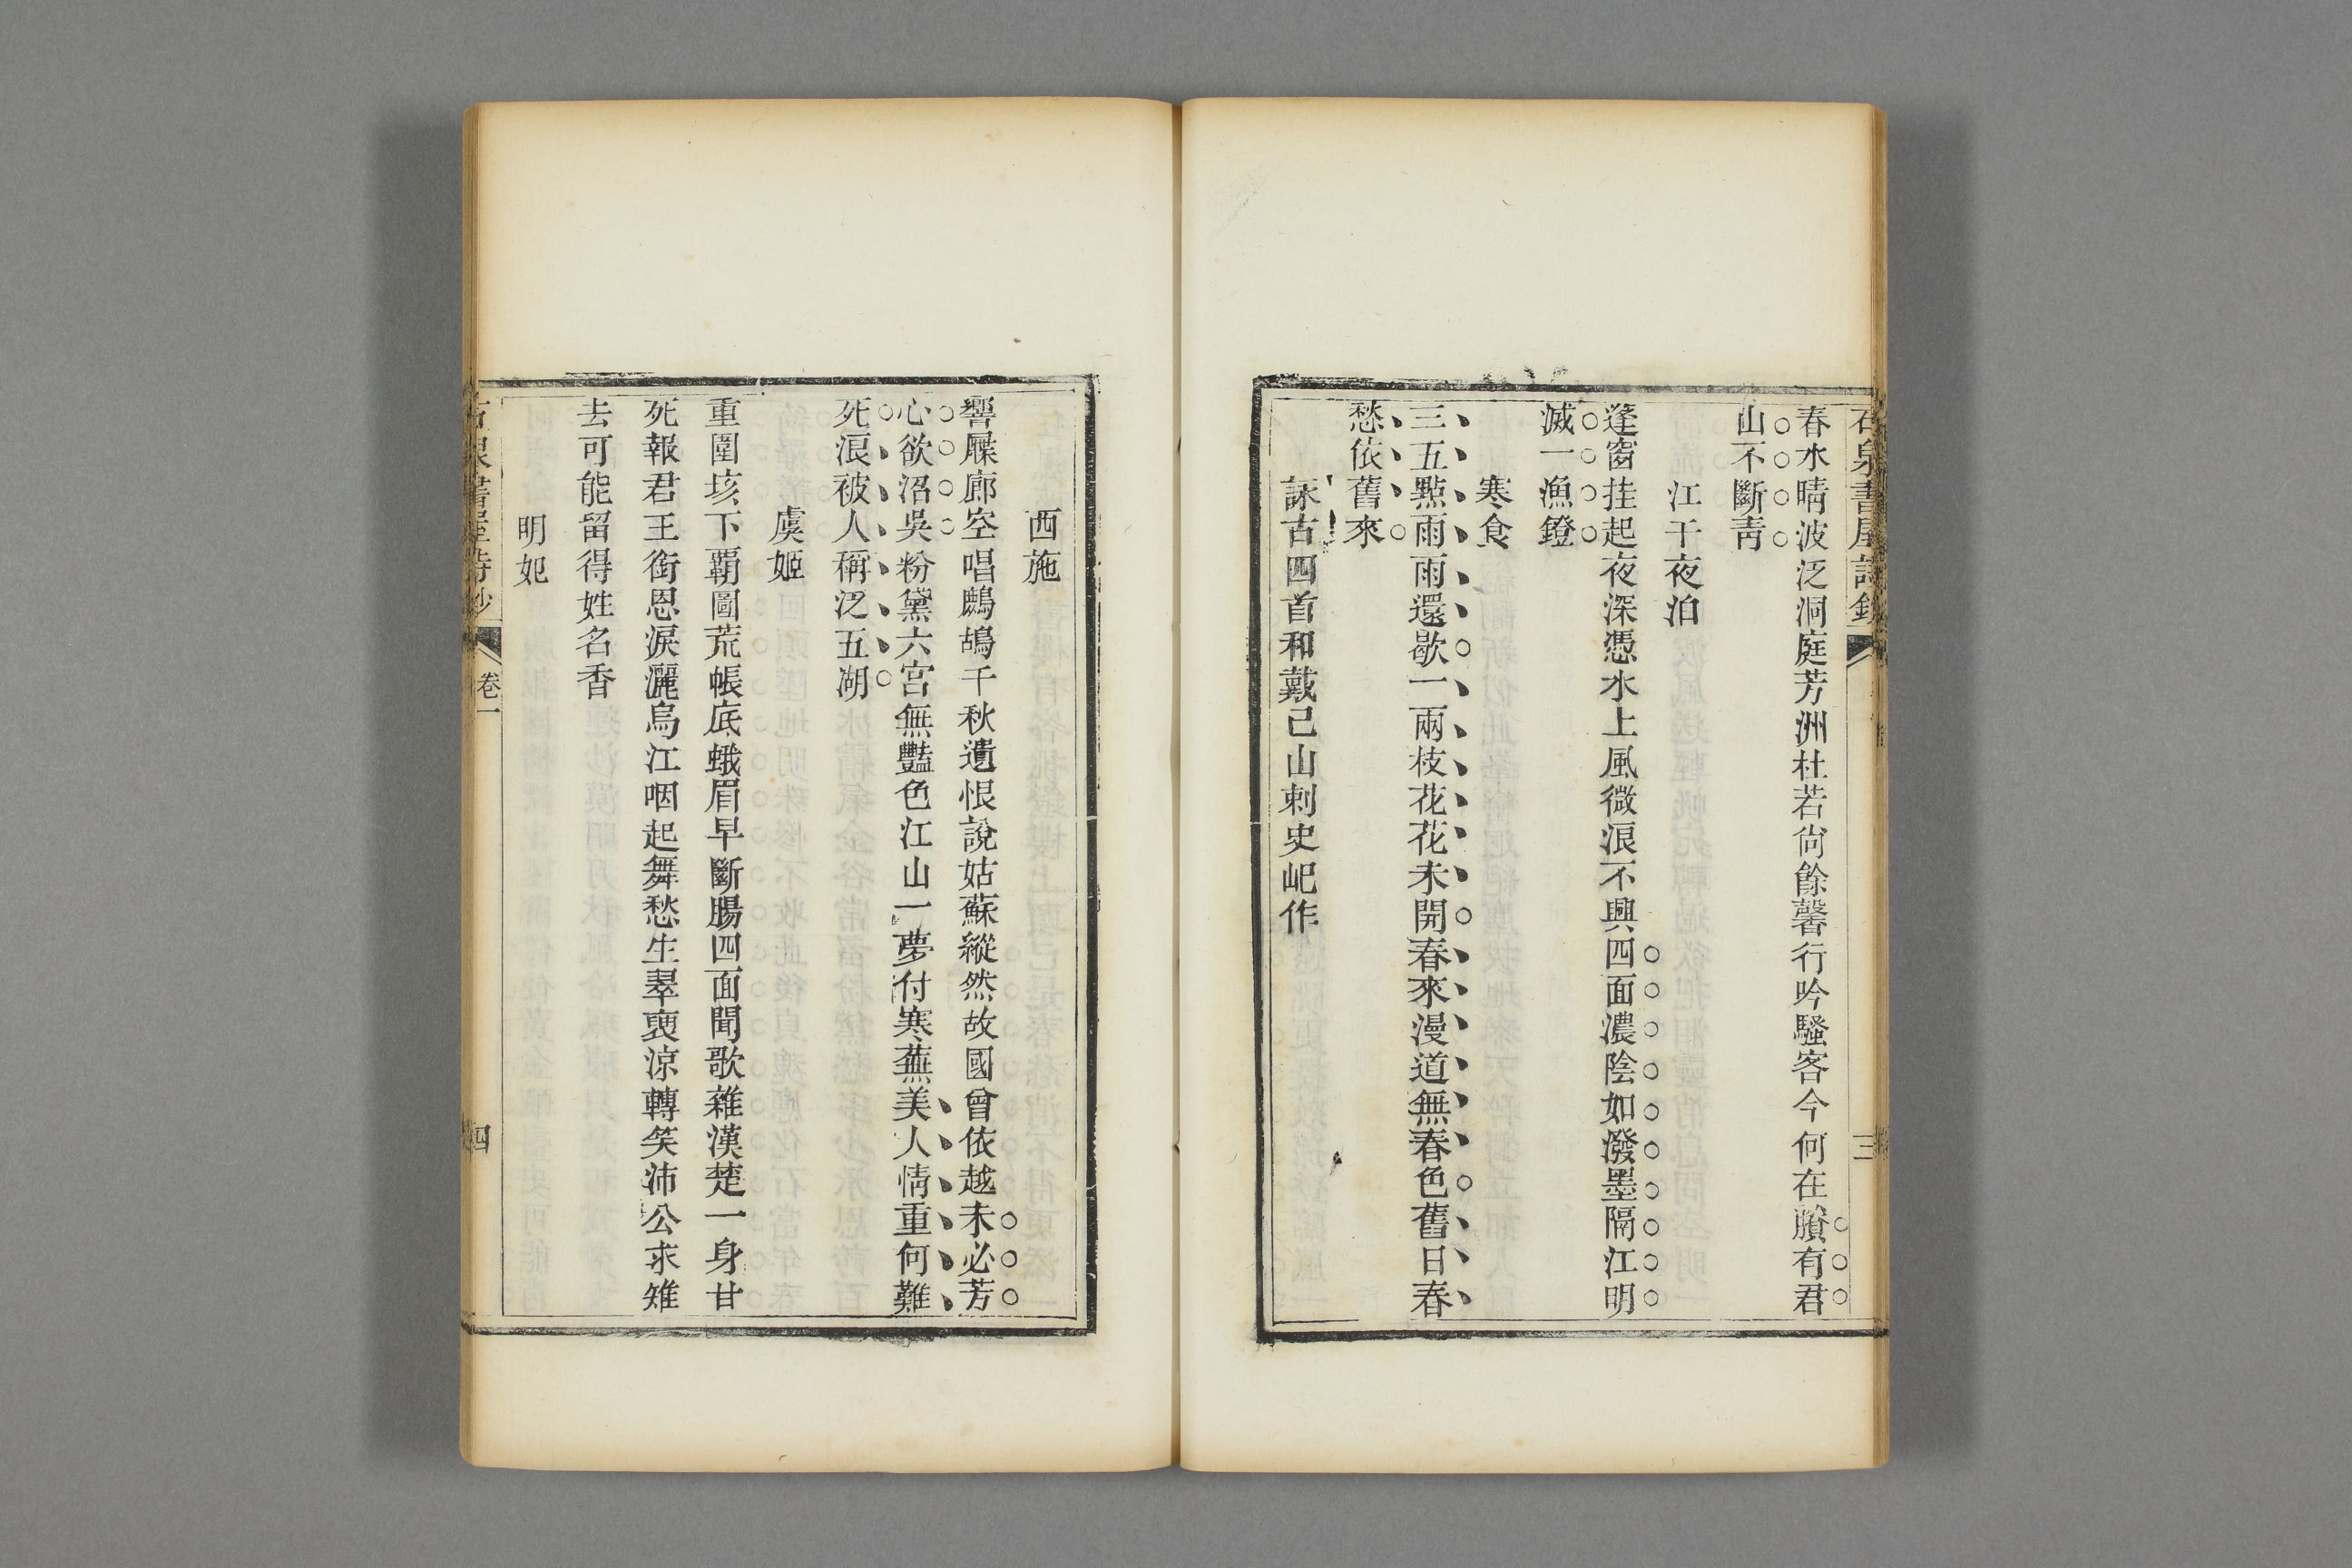 石泉書屋詩鈔
三
春水晴波泛洞庭芳洲杜若尙餘馨行吟騷客今何在賸有君
山不斷靑
江干夜泊
篷窗挂起夜深憑水上風微浪不興四面濃陰如潑墨隔江明
滅一漁鐙
寒食
三五點雨雨還歇一兩枝花花未開春來漫道無春色舊日春
愁依舊來
詠古四首和戴己山刺史屺作
西施
響屧廊空唱鷓鴣千秋遺恨說姑蘇縱然故國曾依越未必芳
心欲沼吳粉黛六宮無豔色江山一夢付寒蕪美人情重何難
死浪被人稱泛五湖
虞姬
重圍垓下覇圖荒帳底蛾眉早斷腸四面聞歌雜漢楚一身甘
死報君王銜恩淚灑烏江咽起舞愁生翠裛涼轉笑沛公求雉
去可能留得姓名香
明妃
石泉書屋詩鈔
卷一
四